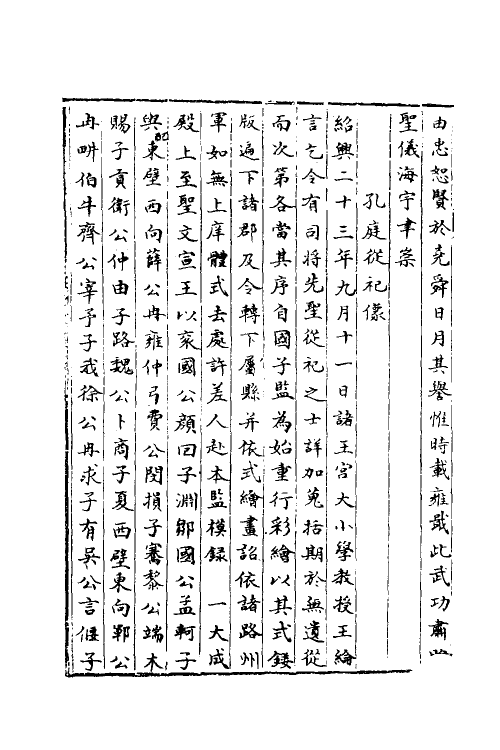 由忠恕賢於堯舜日月其譽惟時載雍戢此武功肅
聖儀海宇聿崇
孔庭從祀像
紹興二十三年九月十一日諸王宮大小學教授王綸
言乞令有司將先聖從祀之士詳加蒐括期於無遺從
而次第各當其序自國子監為始重行彩繪以其式鏤
版遍下諸郡及令轉下屬縣并依式繪畫詔依諸路州
軍如無上庠體式去處許差人赴本監模錄 一大成
殿上至聖文宣王以兖國公顏回子淵鄒國公孟軻子
與配東壁西向薛公冉雍仲弓費公閔損子騫黎公端木
賜子貢衛公仲由子路魏公卜商子夏西壁東向鄆公
冉畊伯牛齊公宰予子我徐公冉求子有吳公言偃子